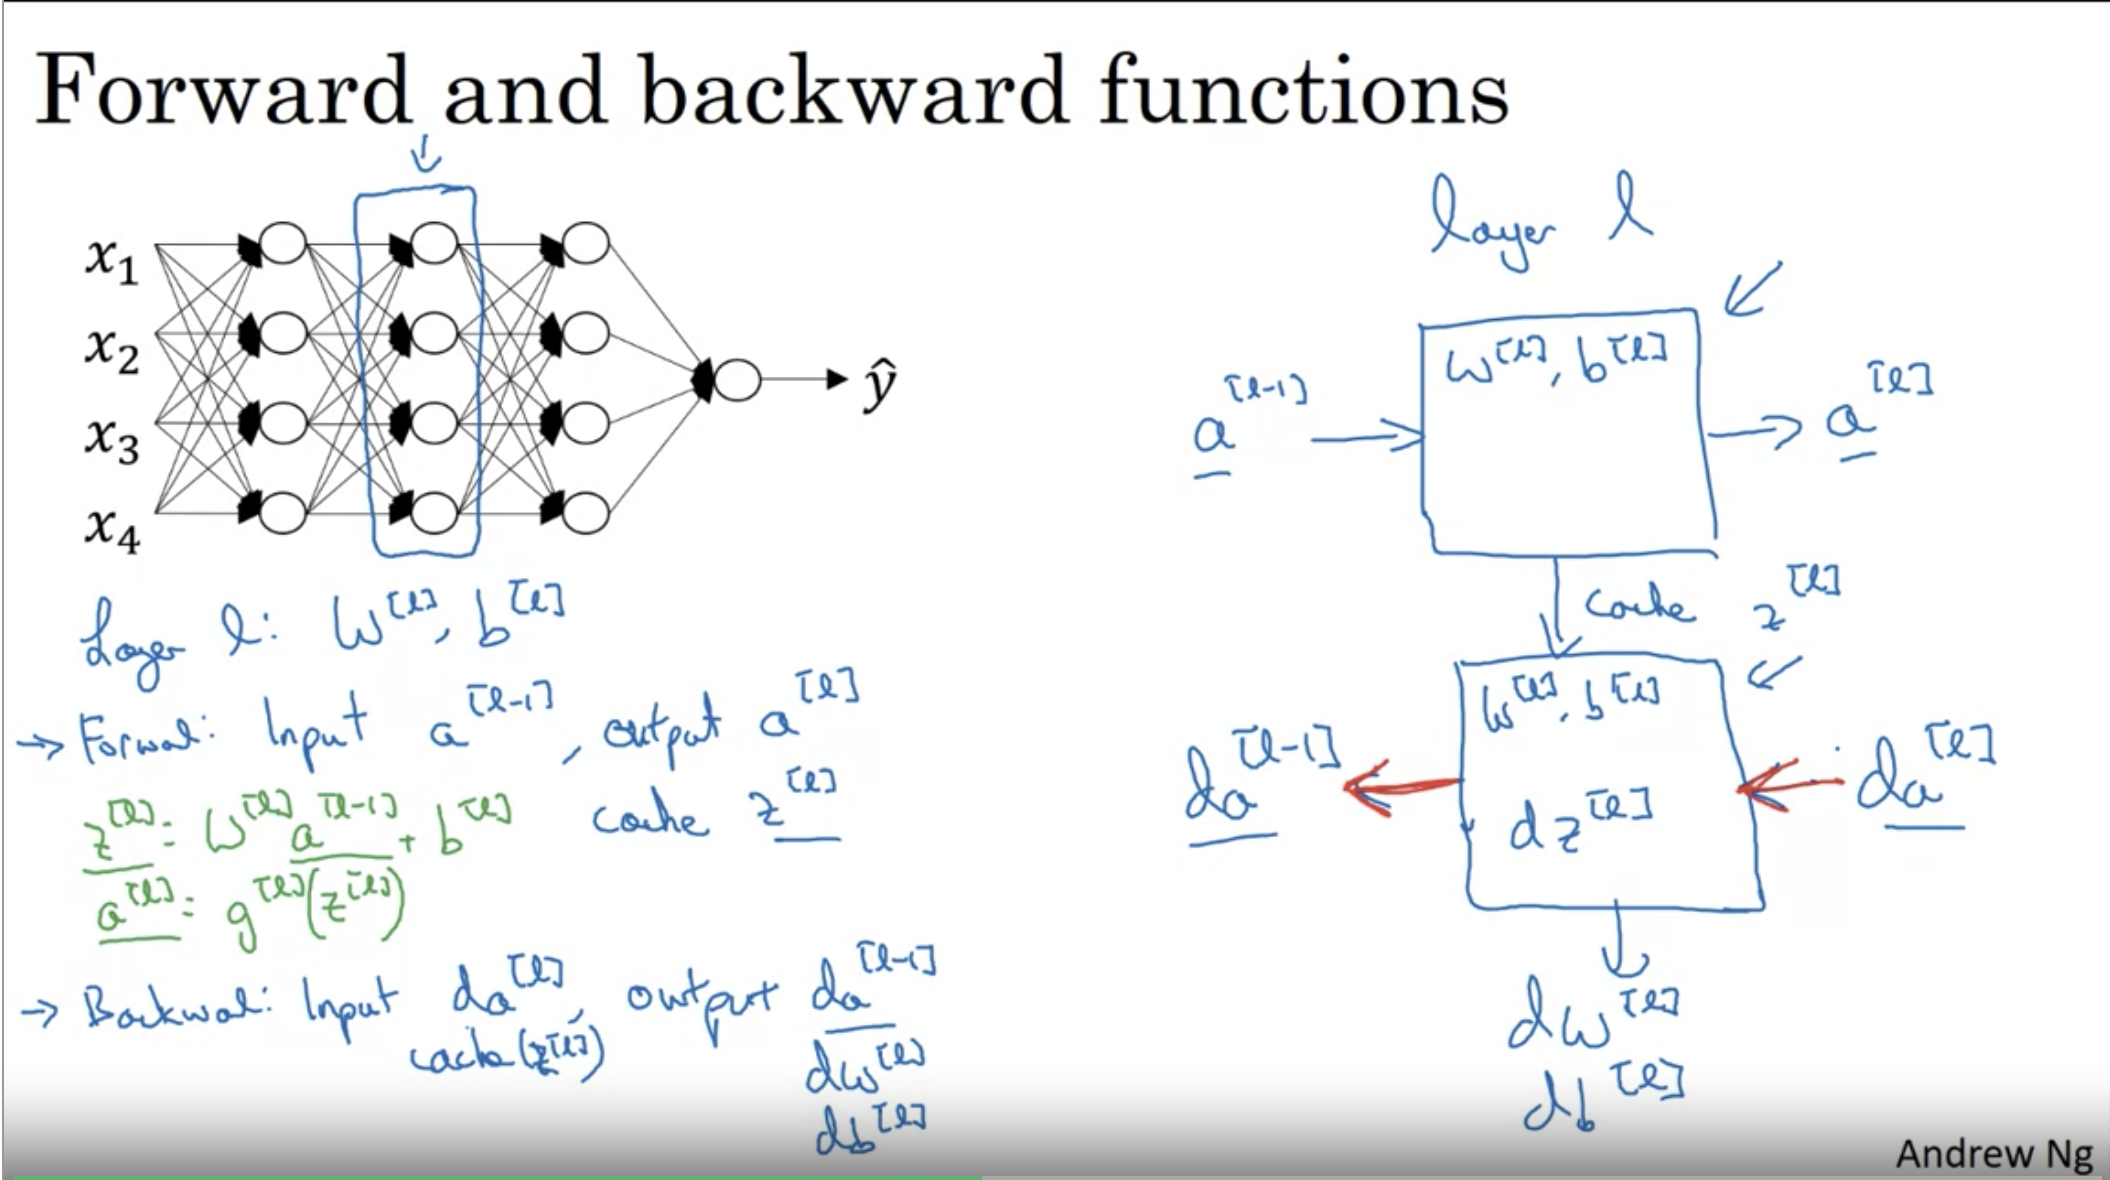 Forward and backward functions
x₁
x₂
x₃
x₄
ŷ
Layer l: W^[l], b^[l]
→ Forward: Input a^[l-1], output a^[l]
cache z^[l]
z^[l] = W^[l] a^[l-1] + b^[l]
a^[l] = g^[l](z^[l])
→ Backward: Input da^[l], output da^[l-1]
cache(z^[l])
dW^[l]
db^[l]
layer l
W^[l], b^[l]
a^[l-1] → → a^[l]
cache z^[l]
W^[l], b^[l]
da^[l-1] ← ← da^[l]
dz^[l]
dW^[l]
db^[l]
Andrew Ng